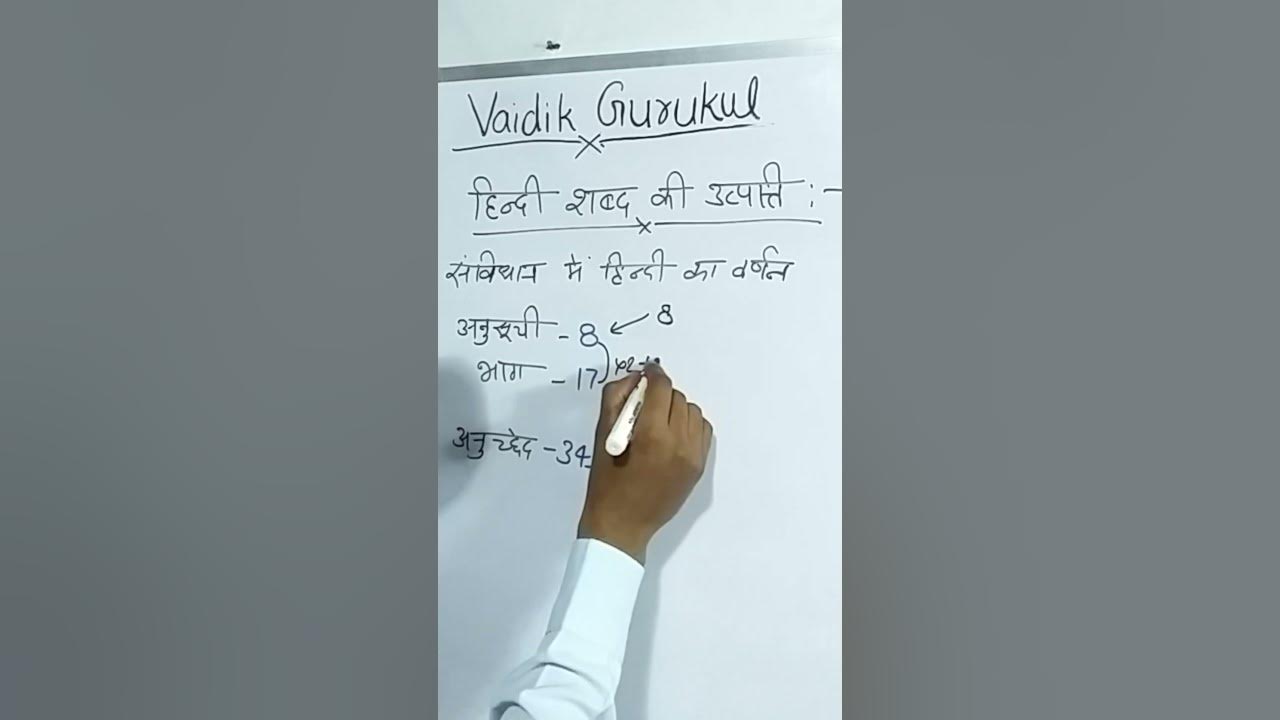 Vaidik Gurukul
हिन्दी शब्द की उत्पत्ति :-
संविधान में हिन्दी का वर्णन
अनुसूची - 8 ← 8
भाग - 17
अनुच्छेद - 34